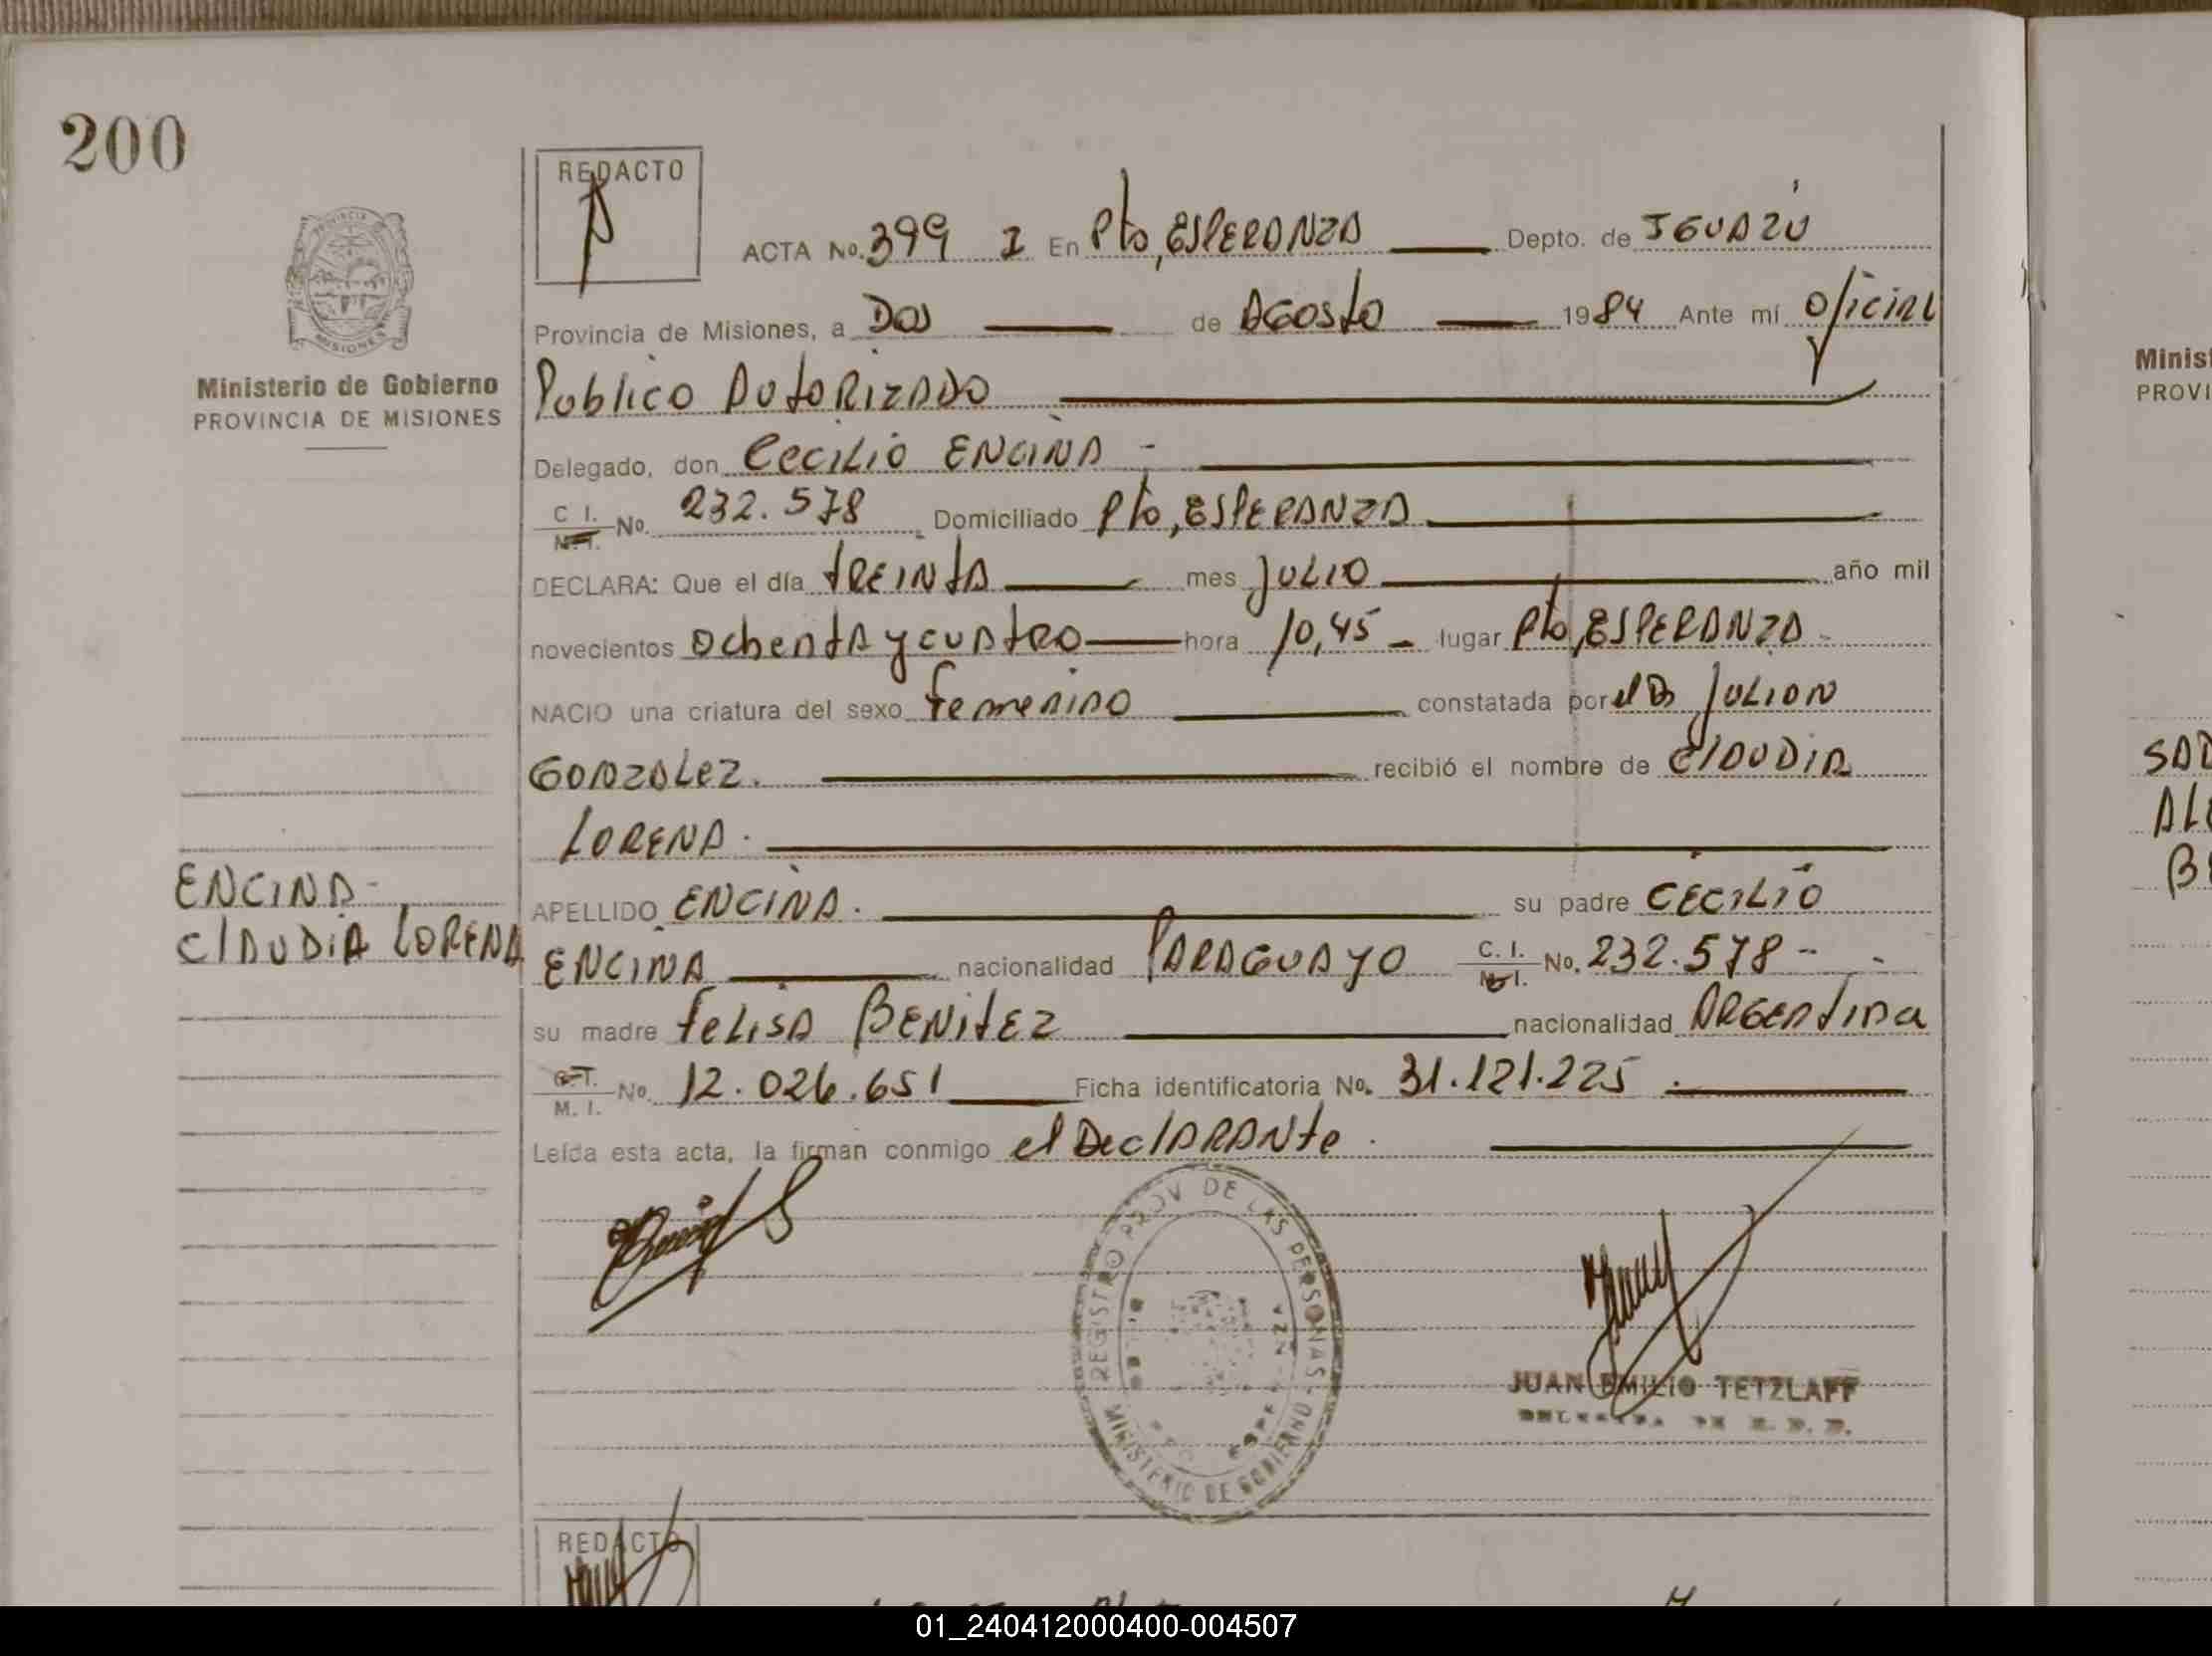 200
REDACTO
ACTA No. 399 I En Pto, ESPERANZA Depto. de IGUAZÚ
Provincia de Misiones, a Dos de Agosto 1984 Ante mí Oficial
Publico Autorizado
Ministerio de Gobierno
PROVINCIA DE MISIONES
Delegado, don Cecilio ENCINA -
C I. No. 232.578 Domiciliado Pto, ESPERANZA
M. I.
DECLARA: Que el día treinta mes Julio año mil
novecientos ochenta y cuatro hora 10,45 - lugar Pto, ESPERANZA -
NACIO una criatura del sexo femenino constatada por el Dr JULION
GONZALEZ. recibió el nombre de Claudia
LORENA.
ENCINA -
Claudia LORENA
APELLIDO ENCINA. su padre CECILIO
ENCINA nacionalidad PARAGUAYO C. I. No. 232.578 -
M. I.
su madre Felisa BENITEZ nacionalidad Argentina
C. I. No. 12.026.651 Ficha identificatoria No. 31.121.225.
M. I.
Leída esta acta, la firman conmigo el Declarante.
REGISTRO PROV DE LAS PERSONAS - MINISTERIO DE GOBIERNO
JUAN EMILIO TETZLAFF
REDACTO
Minis
PROVI
SAD
ALE
BE
01_240412000400-004507